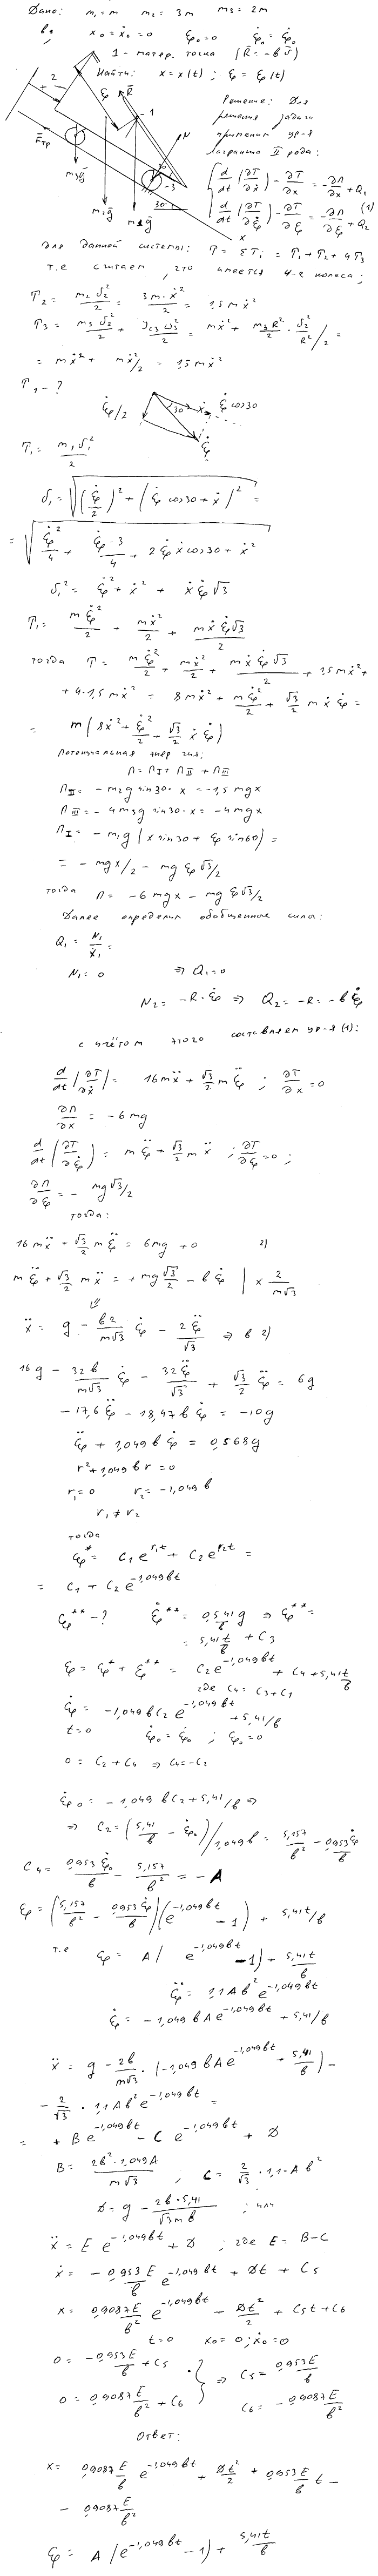 Дано: m₁=m m₂=3m m₃=2m
x₀=ẋ₀=0 ξ₀=0 ξ̇₀=ξ̇₀
1-матер. точка (R̄=-bῡ)
Найти: x=x(t); ξ=ξ(t)
Решение: Для
решения задачи
применим ур-я
Лагранжа II рода:
d/dt(∂T/∂ẋ)-∂T/∂x=-∂П/∂x+Q₁
d/dt(∂T/∂ξ̇)-∂T/∂ξ=-∂П/∂ξ+Q₂ (1)
2
ξ
R̄
1
N
3
F̄тр
m₃ḡ
m₂ḡ
m₁ḡ
30°
x
для данной системы: T=ΣTᵢ=T₁+T₂+4T₃
т.е считаем, что имеется 4-е колеса;
T₂=m₂υ₂²/2=3m·ẋ²/2=1,5mẋ²
T₃=m₃υ₃²/2+J_C₃ω₃²/2=mẋ²+m₃R²/2·υ₃²/R²/2=
=mẋ²+mẋ²/2=1,5mẋ²
T₁-?
ξ̇/2 30 ẋ ξ̇cos30
ξ̇
T₁=m₁υ₁²/2
υ₁=√((ξ̇/2)²+(ξ̇cos30+ẋ)²)=
=√(ξ̇²/4+ξ̇²·3/4+2ξ̇ẋcos30+ẋ²)
υ₁²=ξ̇²+ẋ²+ẋξ̇√3
T₁=mξ̇²/2+mẋ²/2+mẋξ̇√3/2
тогда T=mξ̇²/2+mẋ²/2+mẋξ̇√3/2+1,5mẋ²+
+4·1,5mẋ²=8mẋ²+mξ̇²/2+√3/2mẋξ̇=
=m(8ẋ²+ξ̇²/2+√3/2ẋξ̇)
Потенциальная энергия:
П=П_I+П_II+П_III
П_II=-m₂g sin30·x=-1,5mgx
П_III=-4m₃g sin30·x=-4mgx
П_I=-m₁g(x sin30+ξ sin60)=
=-mgx/2-mgξ√3/2
тогда П=-6mgx-mgξ√3/2
Далее определим обобщенные силы:
Q₁=N₁/ẋ₁=
N₁=0 ⇒Q₁=0
N₂=-R·ξ̇ ⇒ Q₂=-R=-bξ̇
с учётом этого составляем ур-я (1):
d/dt(∂T/∂ẋ)=16mẍ+√3/2mξ̈; ∂T/∂x=0
∂П/∂x=-6mg
d/dt(∂T/∂ξ̇)=mξ̈+√3/2mẍ; ∂T/∂ξ=0;
∂П/∂ξ=-mg√3/2
тогда:
16mẍ+√3/2mξ̈=6mg+0 2)
mξ̈+√3/2mẍ=+mg√3/2-bξ̇ | ×2/m√3
⇓
ẍ=g-b2/m√3ξ̇-2ξ̈/√3 ⇒ в 2)
16g-32b/m√3ξ̇-32ξ̈/√3+√3/2ξ̈=6g
-17,6ξ̈-18,47bξ̇=-10g
ξ̈+1,049bξ̇=0,568g
r²+1,049br=0
r₁=0 r₂=-1,049b
r₁≠r₂
тогда
ξ*=C₁e^r₁t+C₂e^r₂t=
=C₁+C₂e^-1,049bt
ξ**-? ξ̇**=0,541/b g ⇒ξ**=
=5,41t/b+C₃
ξ=ξ*+ξ**=C₂e^-1,049bt+C₄+5,41t/b
где C₄=C₃+C₁
ξ̇=-1,049bC₂e^-1,049bt+5,41/b
t=0 ξ̇₀=ξ̇₀; ξ₀=0
0=C₂+C₄ ⇒C₄=-C₂
ξ̇₀=-1,049bC₂+5,41/b⇒
⇒C₂=(5,41/b-ξ̇₀)/1,049b=5,157/b²-0,953ξ̇₀/b
C₄=0,953ξ̇₀/b-5,157/b²=-A
ξ=(5,157/b²-0,953ξ̇₀/b)(e^-1,049bt-1)+5,41t/b
т.е ξ=A(e^-1,049bt-1)+5,41t/b
ξ̈=1,1Ab²e^-1,049bt
ξ̇=-1,049bAe^-1,049bt+5,41/b
ẍ=g-2b/m√3·(-1,049bAe^-1,049bt+5,41/b)-
-2/√3·1,1Ab²e^-1,049bt=
=+Be^-1,049bt-Ce^-1,049bt+D
B=2b²·1,049A/m√3, C=2/√3·1,1·Ab²
D=g-2b·5,41/√3mb; или
ẍ=Ee^-1,049bt+D; где E=B-C
ẋ=-0,953E/b e^-1,049bt+Dt+C₅
x=0,9087E/b² e^-1,049bt+Dt²/2+C₅t+C₆
t=0 x₀=0; ẋ₀=0
0=-0,953E/b+C₅
⇒ C₅=0,953E/b
0=0,9087E/b²+C₆
C₆=-0,9087E/b²
Ответ:
x=0,9087E/b e^-1,049bt+Dt²/2+0,953E/b t-
-0,9087E/b²
ξ=A(e^-1,049bt-1)+5,41t/b